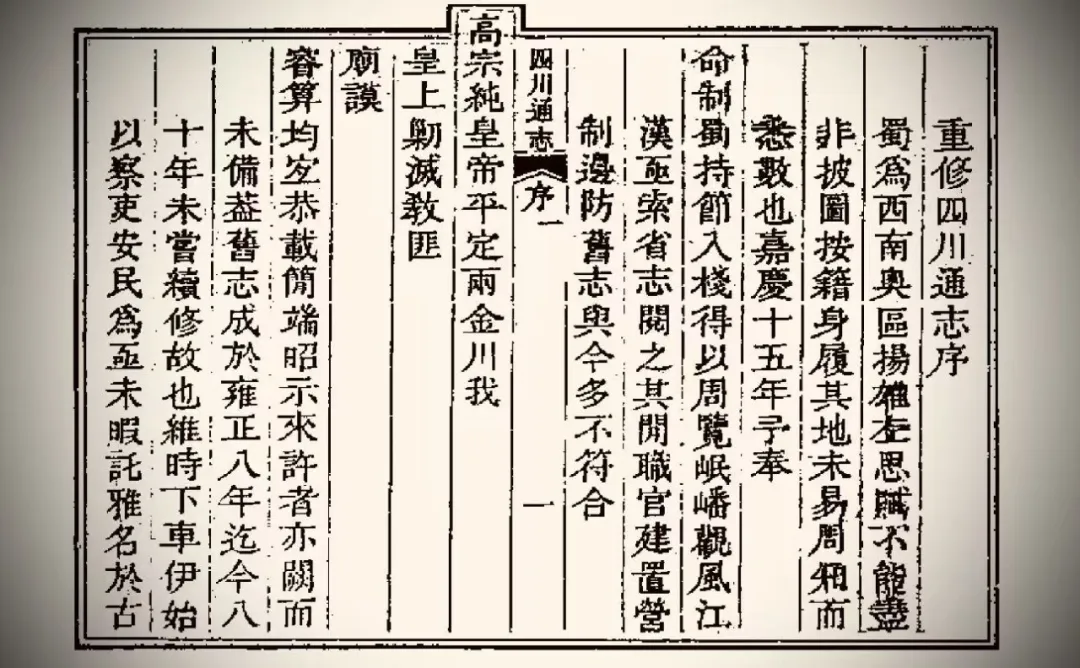 重修四川通志序
蜀爲西南奥區揚雄左思賦不能盡
非披圖按籍身履其地未易周知而
悉數也嘉慶十五年予奉
命制蜀持節入棧得以周覽岷嶓觀風江
漢亟索省志閱之其間職官建置營
制邊防舊志與今多不符合
四川通志 序一 一
高宗純皇帝平定兩金川我
皇上勦滅敎匪
廟謨
睿算均宐恭載簡端昭示來許者亦闕而
未備葢舊志成於雍正八年迄今八
十年未嘗續修故也維時下車伊始
以察吏安民爲亟未暇託雅名於古